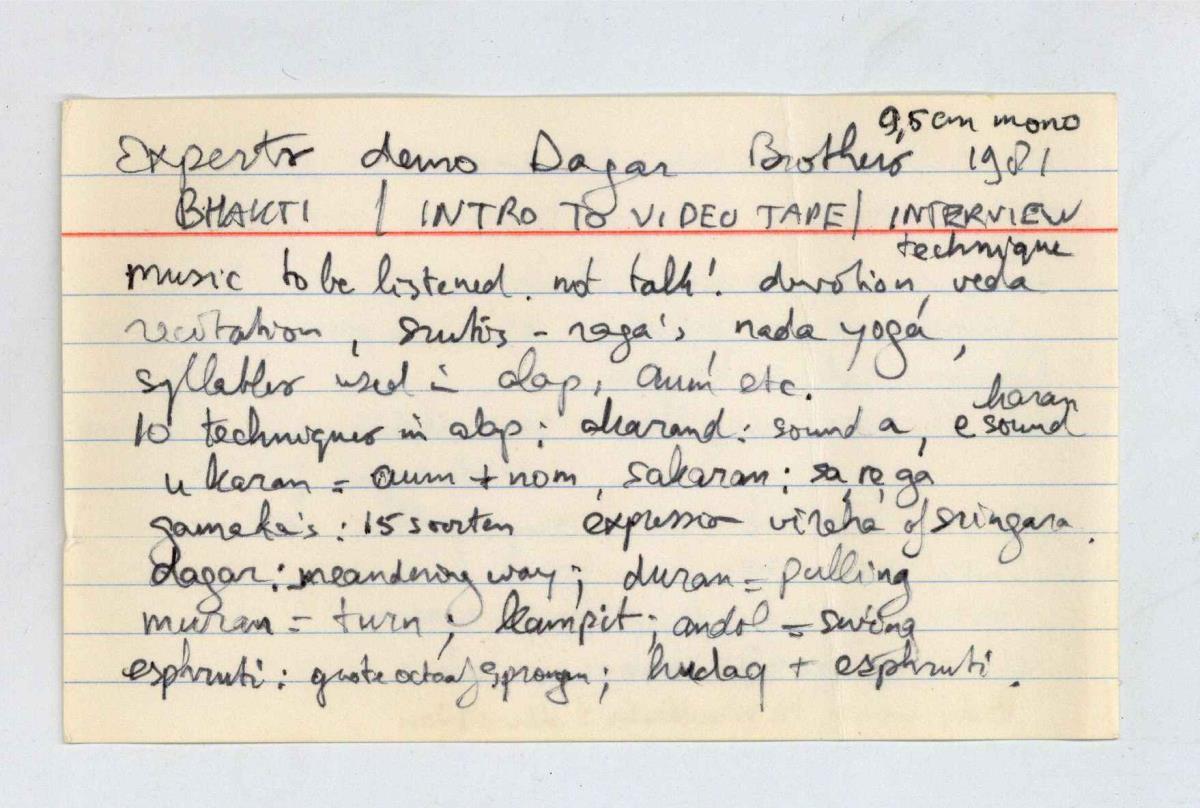 9,5 cm mono
Experts demo Dagar Brothers 1981
BHAKTI / INTRO TO VIDEO TAPE / INTERVIEW
technique
music to be listened. not talk! devotion, veda
recitation, srutis - raga's nada yoga,
syllables used in alap, aum etc.
karan
10 techniques in alap: akarand: sound a, e sound
u karan = aum + nom, sakaran: sa, re, ga
gamaka's: 15 soorten expressio viraha of sringara.
dagar: meandering way; duran = pulling
muran = turn; kampit; andol = swing
esphruti: grote octaaf sprongen; hudaq + esphruti.